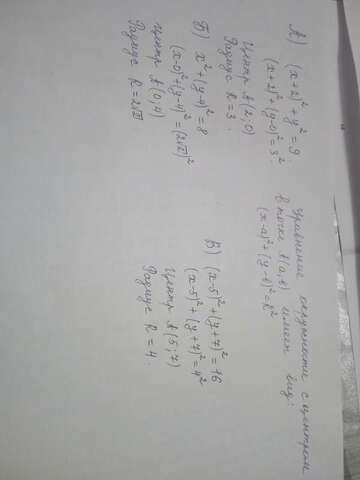 Уравнение окружности с центром
в точке A(a,b) имеет вид:
(x-a)²+(y-b)²=R²
А) (x+2)²+y²=9.
(x+2)²+(y-0)²=3²
Центр A(2;0)
Радиус R=3.
Б) x²+(y-4)²=8
(x-0)²+(y-4)²=(2√2)²
Центр A(0;4)
Радиус R=2√2
В) (x-5)²+(y+7)²=16
(x-5)²+(y+7)²=4²
Центр A(5;7)
Радиус R=4.